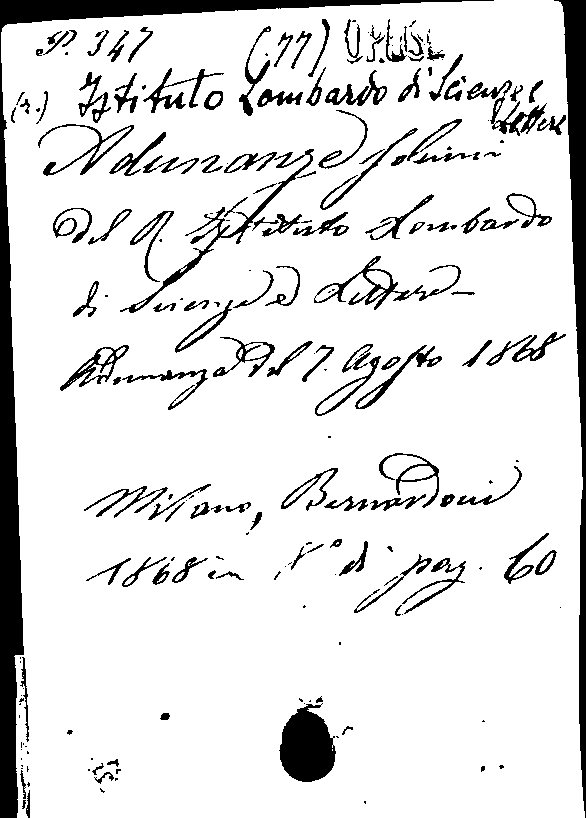 P. 347 (77)
(r.) Istituto Lombardo di Scienze e
Lettere
Adunanze solenni
del R. Istituto Lombardo
di Scienze e Lettere
Adunanza del 7. Agosto 1868
Milano, Bernardoni
1868 in 8° di pag. 60